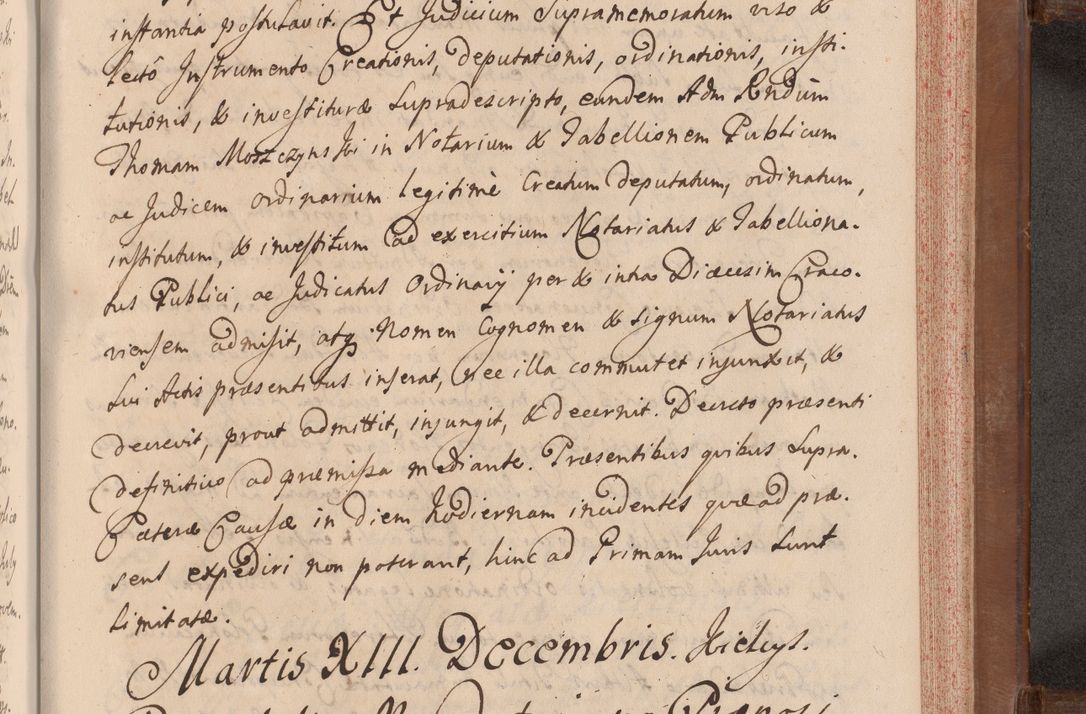 instantia postulavit. Et Judicium Supramemoratum viso &
lectô Instrumento Creationis, deputationis, ordinationis, insti-
tutionis, & investituræ Supradescripto, eundem Adm Rndum
Thomam Moszczynski in Notarium & Tabellionem Publicum
ac Judicem ordinarium legitimè Creatum deputatum, ordinatum,
institutum, & investitum ad exercitium Notariatus & Tabelliona-
tus Publici, ac Judicatus Ordinarij per & intra Diœcesim Craco-
viensem admisit, atq Nomen Cognomen & Signum Notariatus
Sui Actis præsentibus inserat, nec illa commutet injunxit, &
decrevit, prout admittit, injungit, & decernit. Decreto præsenti
definitivo ad præmissa mediante. Præsentibus quibus Supra.
Cæteræ Causæ in diem hodiernam incidentes quæ ad præ-
sens expediri non poterant, hinc ad Primam Juris Sunt
Limitatæ.
Martis XIII. Decembris. Kielcys.